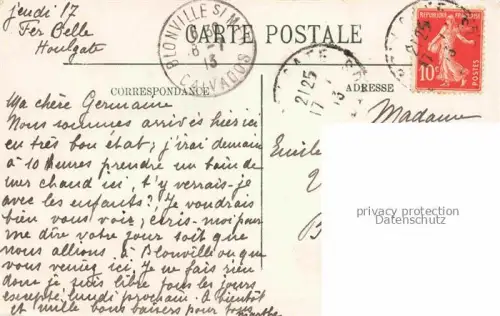 jeudi 17
Fer Belle
Houlgate
BLONVILLE S/ MER
CALVADOS
CARTE POSTALE
CORRESPONDANCE
ADRESSE
21 25
17
13
21 25
REPUBLIQUE FRANÇAISE
10
POSTES
Ma chère Germaine
Nous sommes arrivés hier ici
en très bon état ; j'irai demain
à 10 heures prendre un bain de
mer chaud ici, t'y verrais-je
avec les enfants? Je voudrais
bien vous voir ; écris-moi pour
me dire votre jour soit que
nous allions à Blonville ou que
vous veniez ici. Je ne fais rien
donc je suis libre tous les jours
excepté lundi prochain. A bientôt
et mille bons baisers pour tous
Marthe
Madame
Emile
privacy protection
Datenschutz